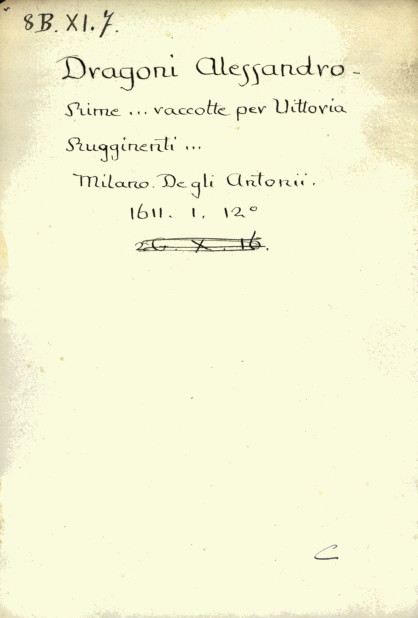 8B. XI. 7.
Dragoni Alessandro -
Rime ... raccolte per Vittoria
Rugginenti ...
Milano. Degli Antonii.
1611. 1. 12°
2G. X. 16.
C